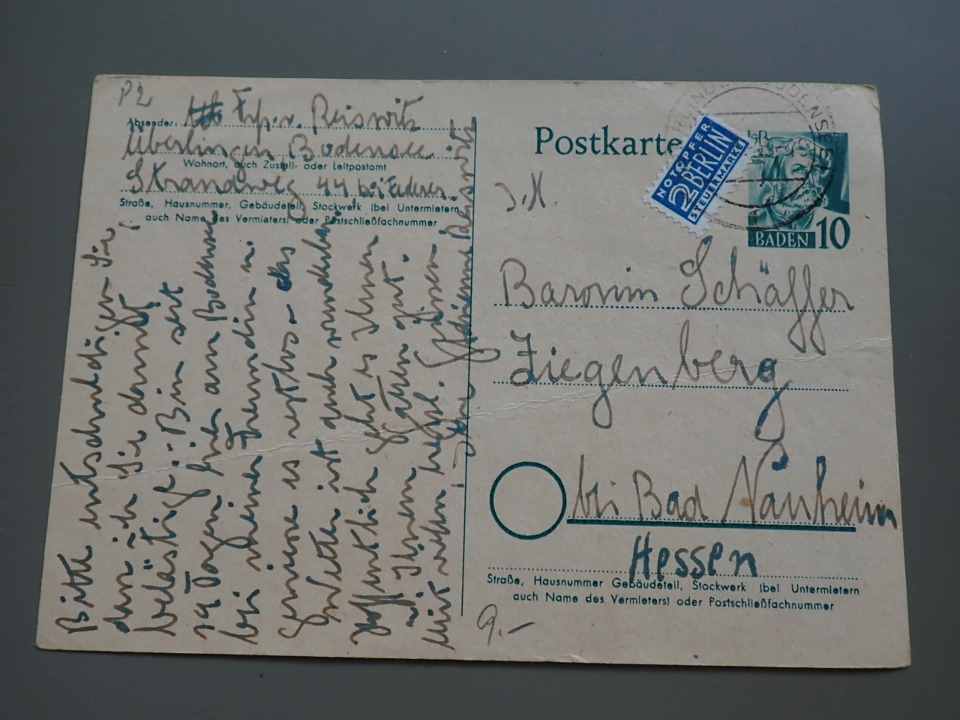 P2
Frp. v. Reiswitz
Absender:
Überlingen Bodensee
Wohnort, auch Zustell- oder Leitpostamt
Strandweg 44 bei Federer
Straße, Hausnummer, Gebäudeteil, Stockwerk (bei Untermietern
auch Name des Vermieters) oder Postschließfachnummer
Postkarte
NOTOPFER
2 BERLIN
STEUERMARKE
BADEN 10
Baronin Schäffer
Ziegenberg
bei Bad Nauheim
Hessen
Straße, Hausnummer Gebäudeteil, Stockwerk (bei Untermietern
auch Name des Vermieters) oder Postschließfachnummer
9.-
Bitte entschuldigen Sie,
dass ich Sie damit
belästige. Bin seit
14 Tagen hier am Bodensee
bei meiner Freundin u.
geniesse es restlos - das
Wetter ist auch wunderbar
Hoffentlich geht es Ihnen
u. Ihrem Gatten gut.
Mit vielen herzl. Grüssen
Ihre Reiswitz